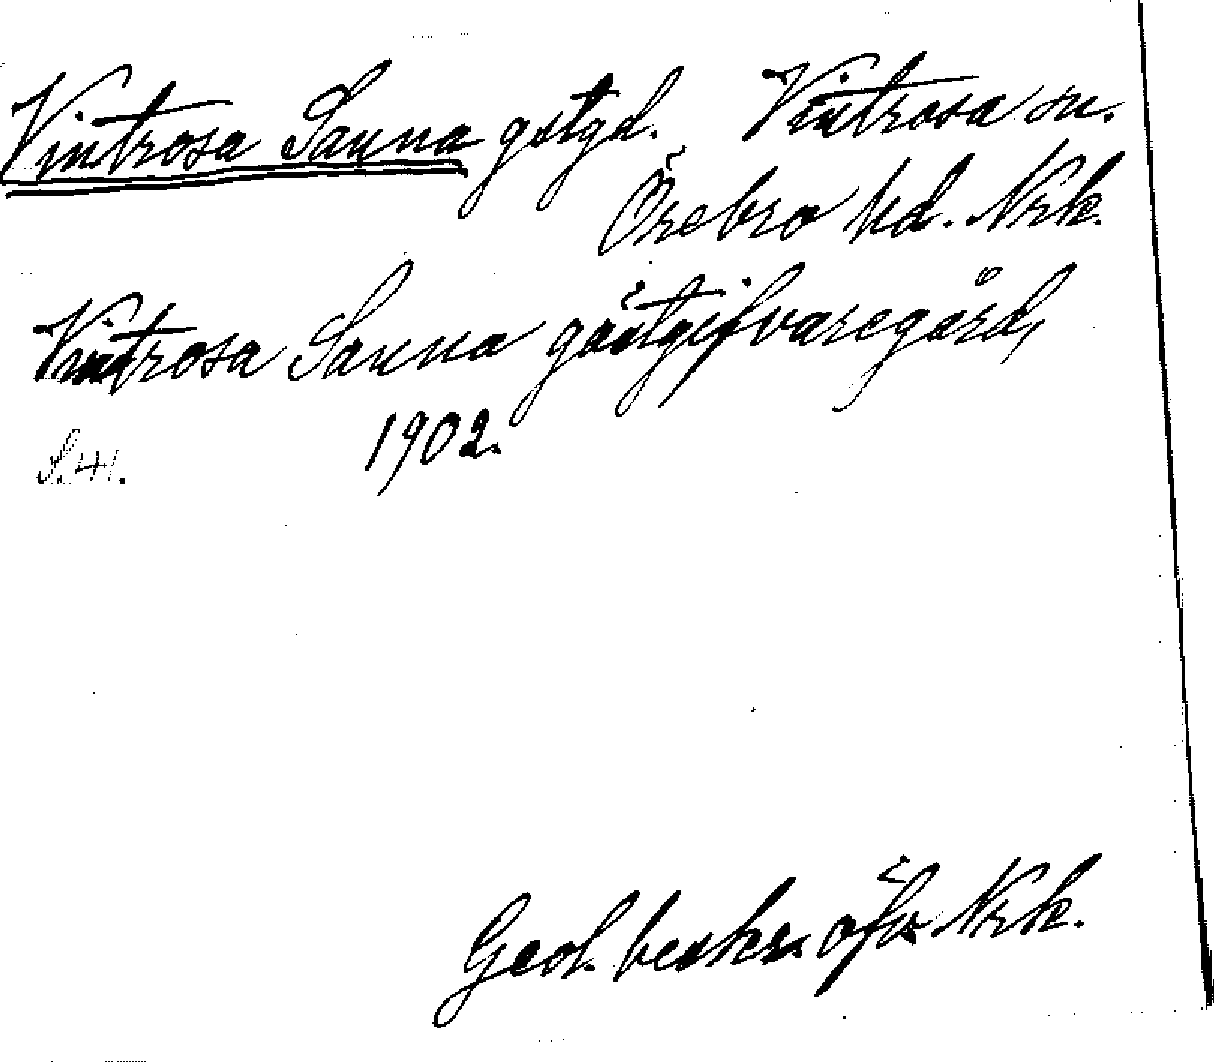 Vintrosa Sanna gstgd. Vintrosa sn.
Örebro hd. Nrk.
Vintrosa Sanna gästgifvaregård,
1902.
S. 41.
Geol. beskr. öfv. Nrk.